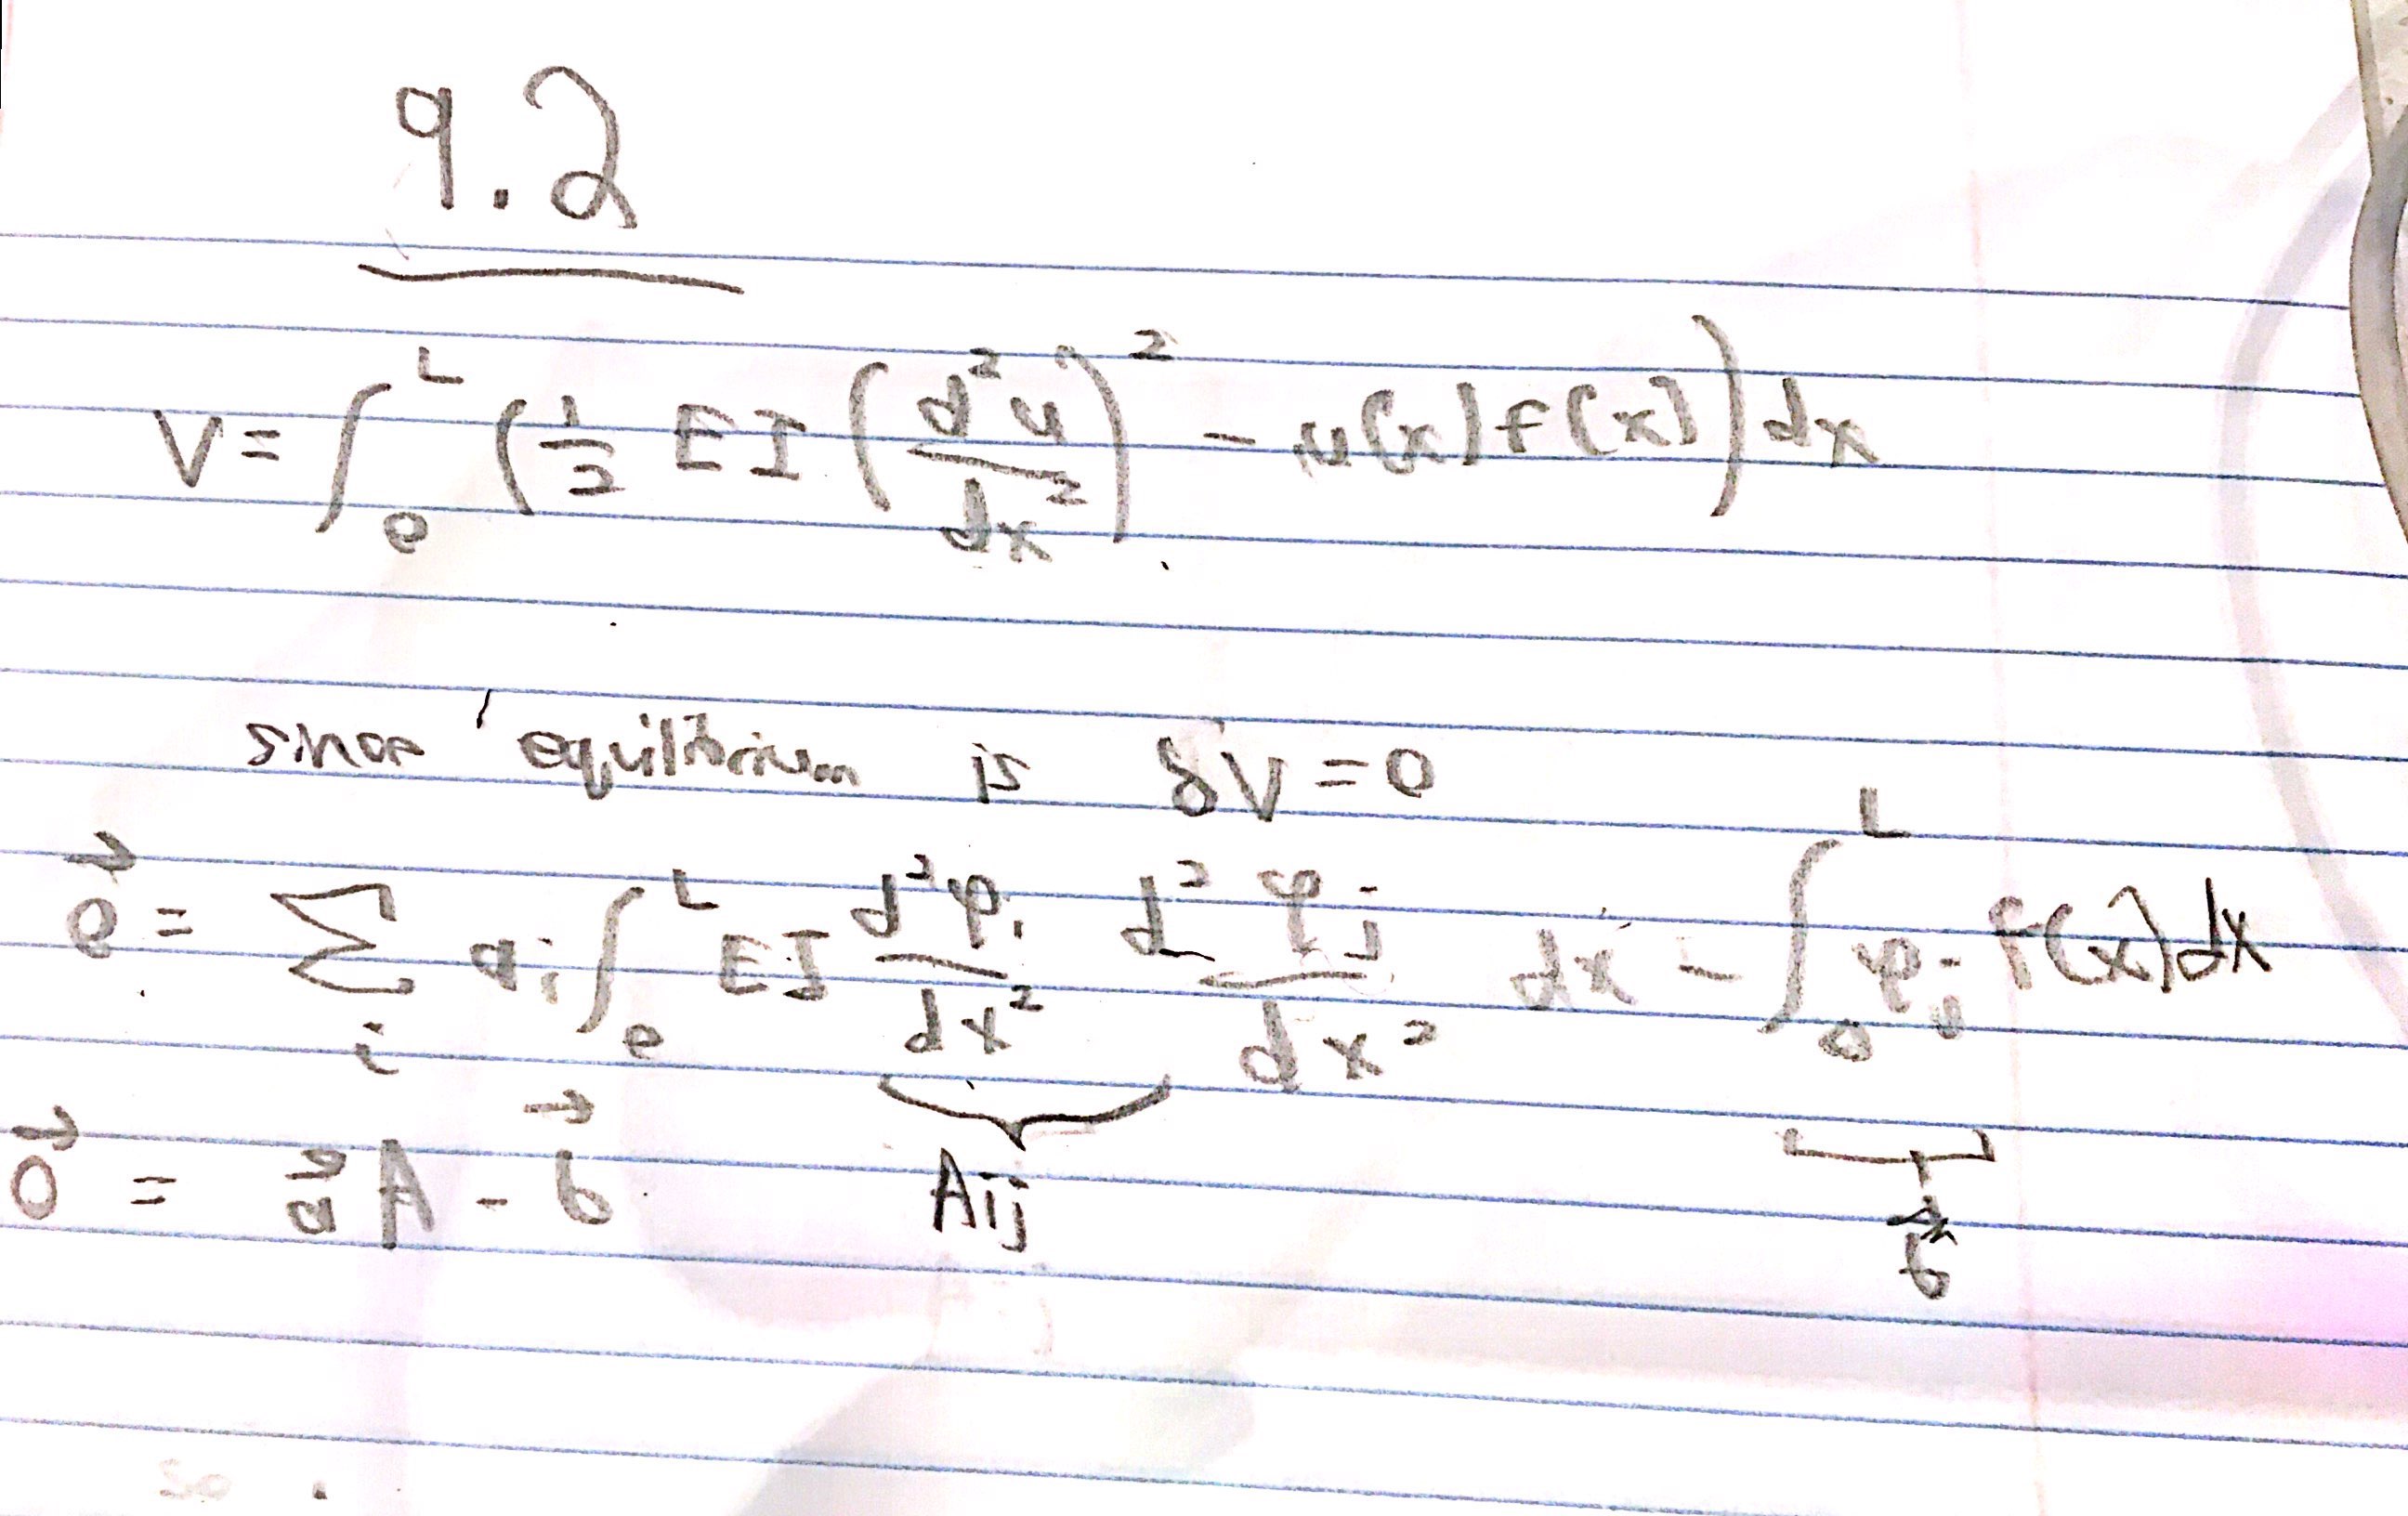 9.2
V = ∫₀ᴸ (½ EI (d²u/dx²)² - u(x)f(x)) dx
since equilibrium is δV = 0
0⃗ = Σᵢ aᵢ ∫₀ᴸ EI d²φᵢ/dx² d²φⱼ/dx² dx - ∫₀ᴸ φⱼ f(x)dx
0⃗ = a⃗A - b⃗ Aij b⃗
so